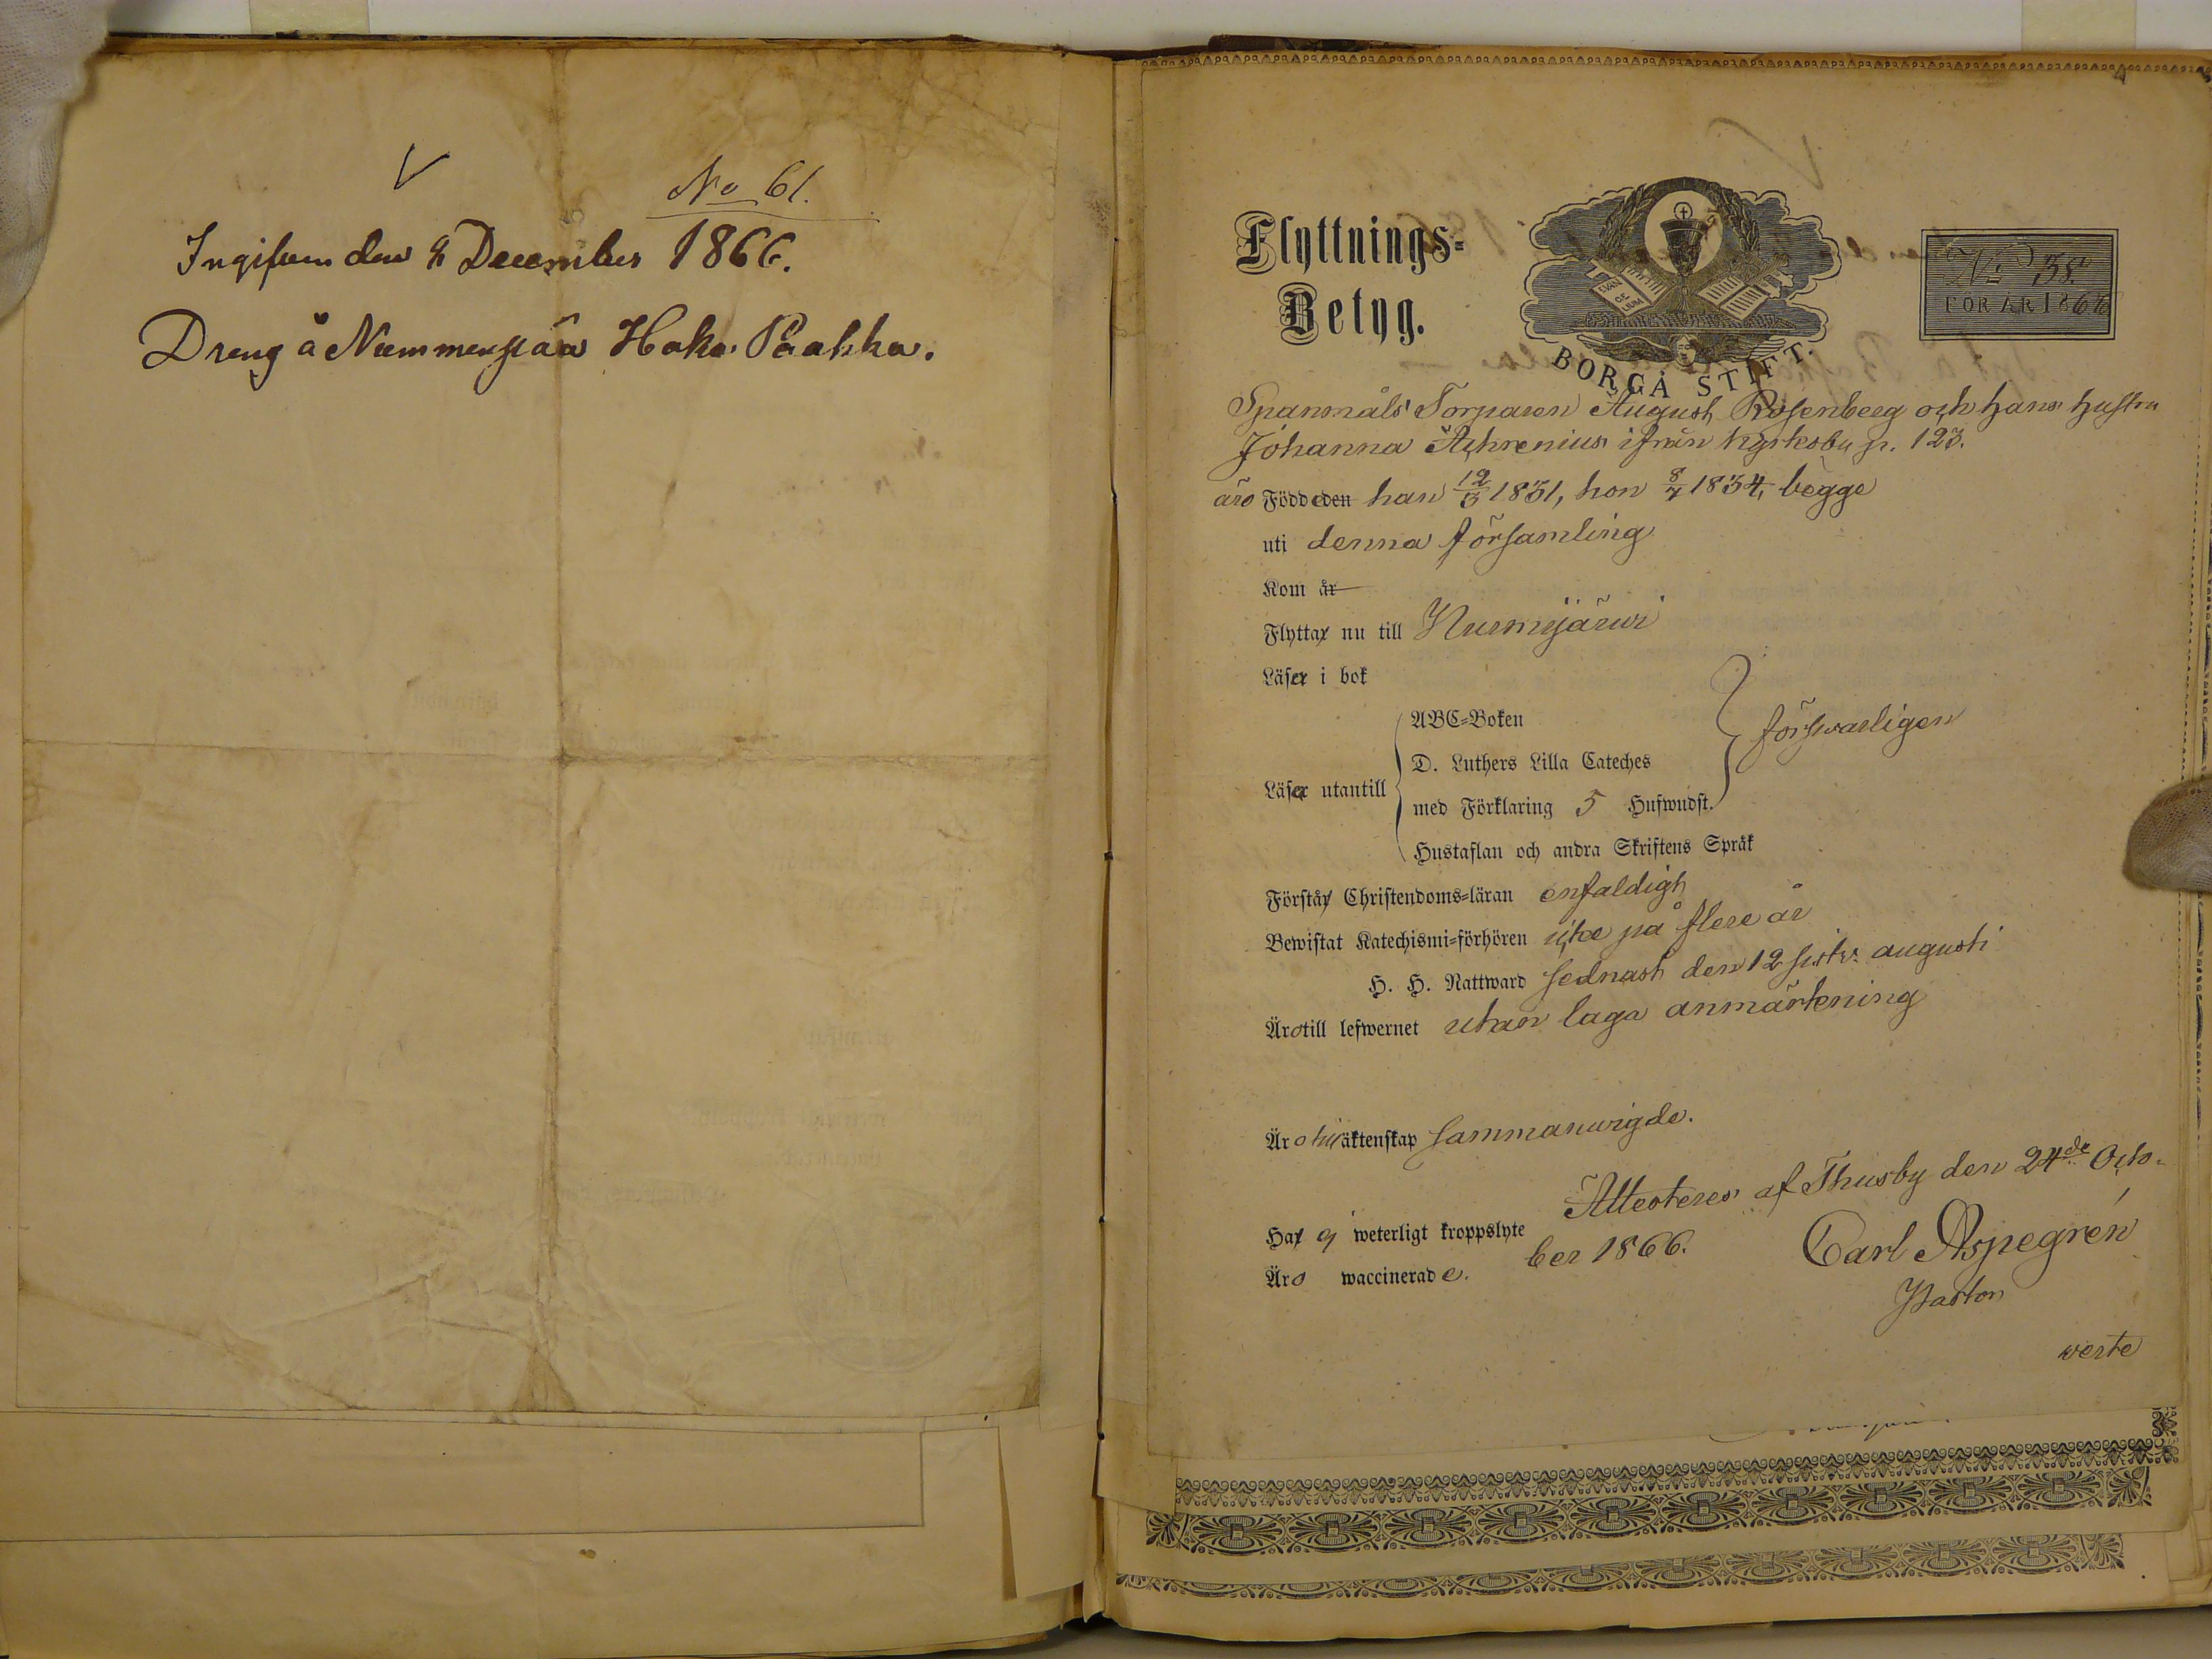 No 61.
Ingifven den 4 December 1866.
Dreng å Nummenpää Haka Paakka.
Flyttnings=
Betyg.
EVAN
GE
LIUM
BORGÅ STIFT.
No 38.
FÖR ÅR 1866
Spanmåls Torparen August Rosenberg och hans hustru
Johanna Achrenius ifrån Kyrkoby p. 123.
äro Född eden han 12/3 1831, hon 8/7 1834, begge
uti denna församling
Kom år
Flyttar nu till Nurmijärwi
Läser i bok
ABC=Boken
D. Luthers Lilla Cateches
försvarligen
Läser utantill
med Förklaring 5 Hufwudst.
Hustaflan och andra Skriftens Språk
Förstår Christendoms=läran enfaldigt
Bewistat Katechismi=förhören icke på flere år
H. H. Nattward sednast den 12 sistv. augusti
Äro till lefwernet utan laga anmärkning
Äro til äktenskap sammanvigde.
Attesteres af Thusby den 24de Octo-
Har ej weterligt kroppslyte
ber 1866.
Carl Aspegrén
Äro waccinerade.
Pastor
verte